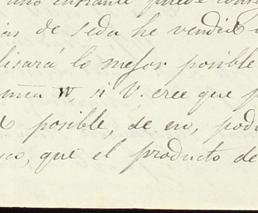 uno entrante puede
ias de seda he vendido
lisará lo mejor posible
W, si V. cree que p
posible, de no, pod
co, que el producto de